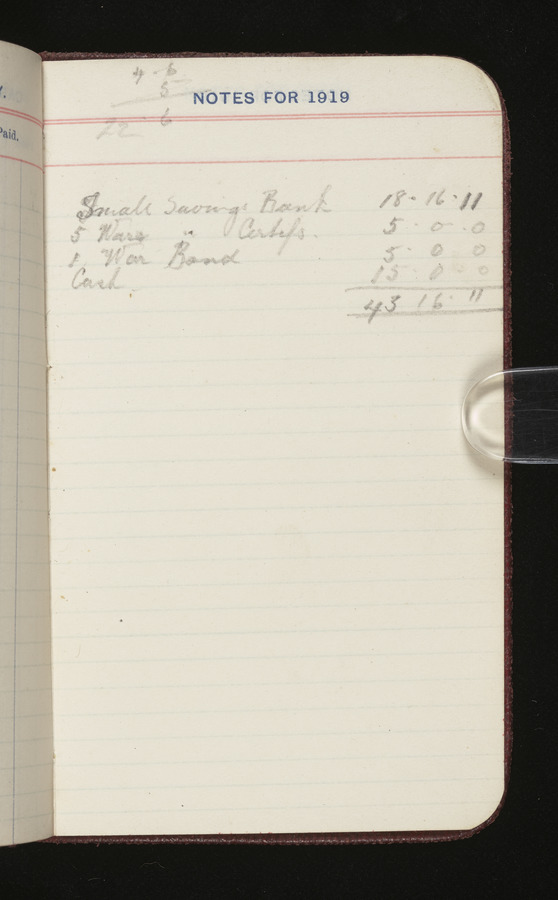 4 - 6
5
NOTES FOR 1919
22 - 6
Small Savings Bank 18 - 16 - 11
5 Wars " Certifs. 5 - 0 - 0
1 War Bond 5 - 0 0
Cash 15 0 0
43 16 - 11
Paid.